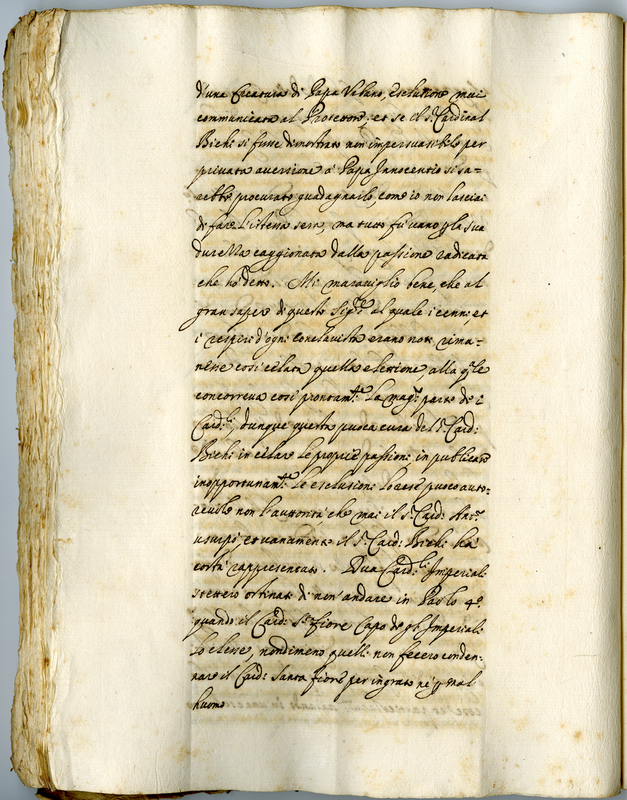 d'una Creatura di Papa Urbano, Esclusione mai
communicata al Protettore; et se il Sr. Cardinal
Bichi si fusse dimostrato non impersuasibile per
privata aversione à Papa Innocentio si sa=
rebbe procurato guadagnarlo, come io non lasciai
di fare l'istessa sera, ma tutto fù vano p la sua
durezza caggionata dalla passione radicata
che hò detto. Mi maraviglio bene, che al
gran sapere di questo Sigre. al quale i cenni, et
i respiri d'ogni conclavista erano noti rima=
nesse così celata quella elettione, alla qle
concorreva così prontamte. La magr. parte de i
Cardli., dunque questa puoca cura del Sr. Card:
Bichi in celare le proprie passioni, in publicare
inopportunamte. le esclusioni lo rese puoco auto=
revile non l'auttorità, che mai il Sr. Card: Antro.
usurpò, et vanamente il Sr. Card: Bichi l'hà
costà rappresentato. Dua Cardli. Imperiali
stettero ostinati di non andare in Paolo 4o.
quando il Card: Sta. fiore Capo de gli Imperiali
lo elesse, nondimeno quelli non fecero conden=
nare il Card: Santa fiore per ingrato nè p mal
huomo